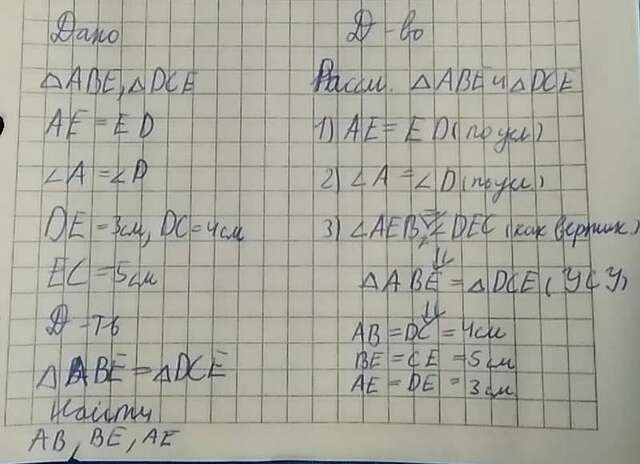 Дано
△ABE, △DCE
AE = ED
∠A = ∠D
DE = 3см, DC = 4см
EC = 5см
Д-ть
△ABE = △DCE
Найти
AB, BE, AE
Д-во
Рассм. △ABE и △DCE
1) AE = ED (по усл)
2) ∠A = ∠D (по усл)
3) ∠AEB = ∠DEC (как вертик.)
⇓
△ABE = △DCE (УСУ)
⇓
AB = DC = 4см
BE = CE = 5см
AE = DE = 3см